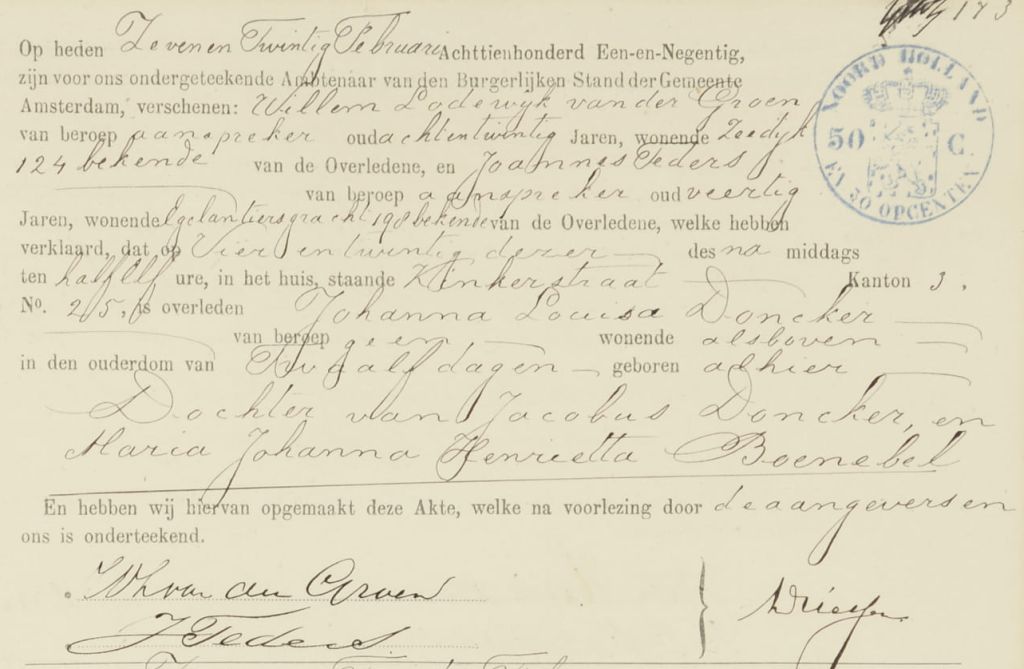 173
Op heden Zevenen Twintig Februari Achttienhonderd Een-en-Negentig,
zijn voor ons ondergeteekende Ambtenaar van den Burgerlijken Stand der Gemeente
Amsterdam, verschenen: Willem Lodewijk van der Groen
van beroep aanspreker oud achtentwintig Jaren, wonende Zeedijk
124 bekende van de Overledene, en Joannes Teders
van beroep aanspreker oud veertig
Jaren, wonende Egelantiersgracht 198 bekende van de Overledene, welke hebben
verklaard, dat op Vier en twintig dezer des na middags
ten half Elf ure, in het huis, staande Kinkerstraat Kanton 3.
No. 25, is overleden Johanna Louisa Doncker
van beroep geen wonende alsboven
in den ouderdom van Twaalf dagen geboren alhier
Dochter van Jacobus Doncker, en
Maria Johanna Henrietta Boenebel
En hebben wij hiervan opgemaakt deze Akte, welke na voorlezing door de aangevers en
ons is onderteekend.
WL van der Groen
J Teders
NOORD HOLLAND
50 C.
EN 30 OPCENTEN